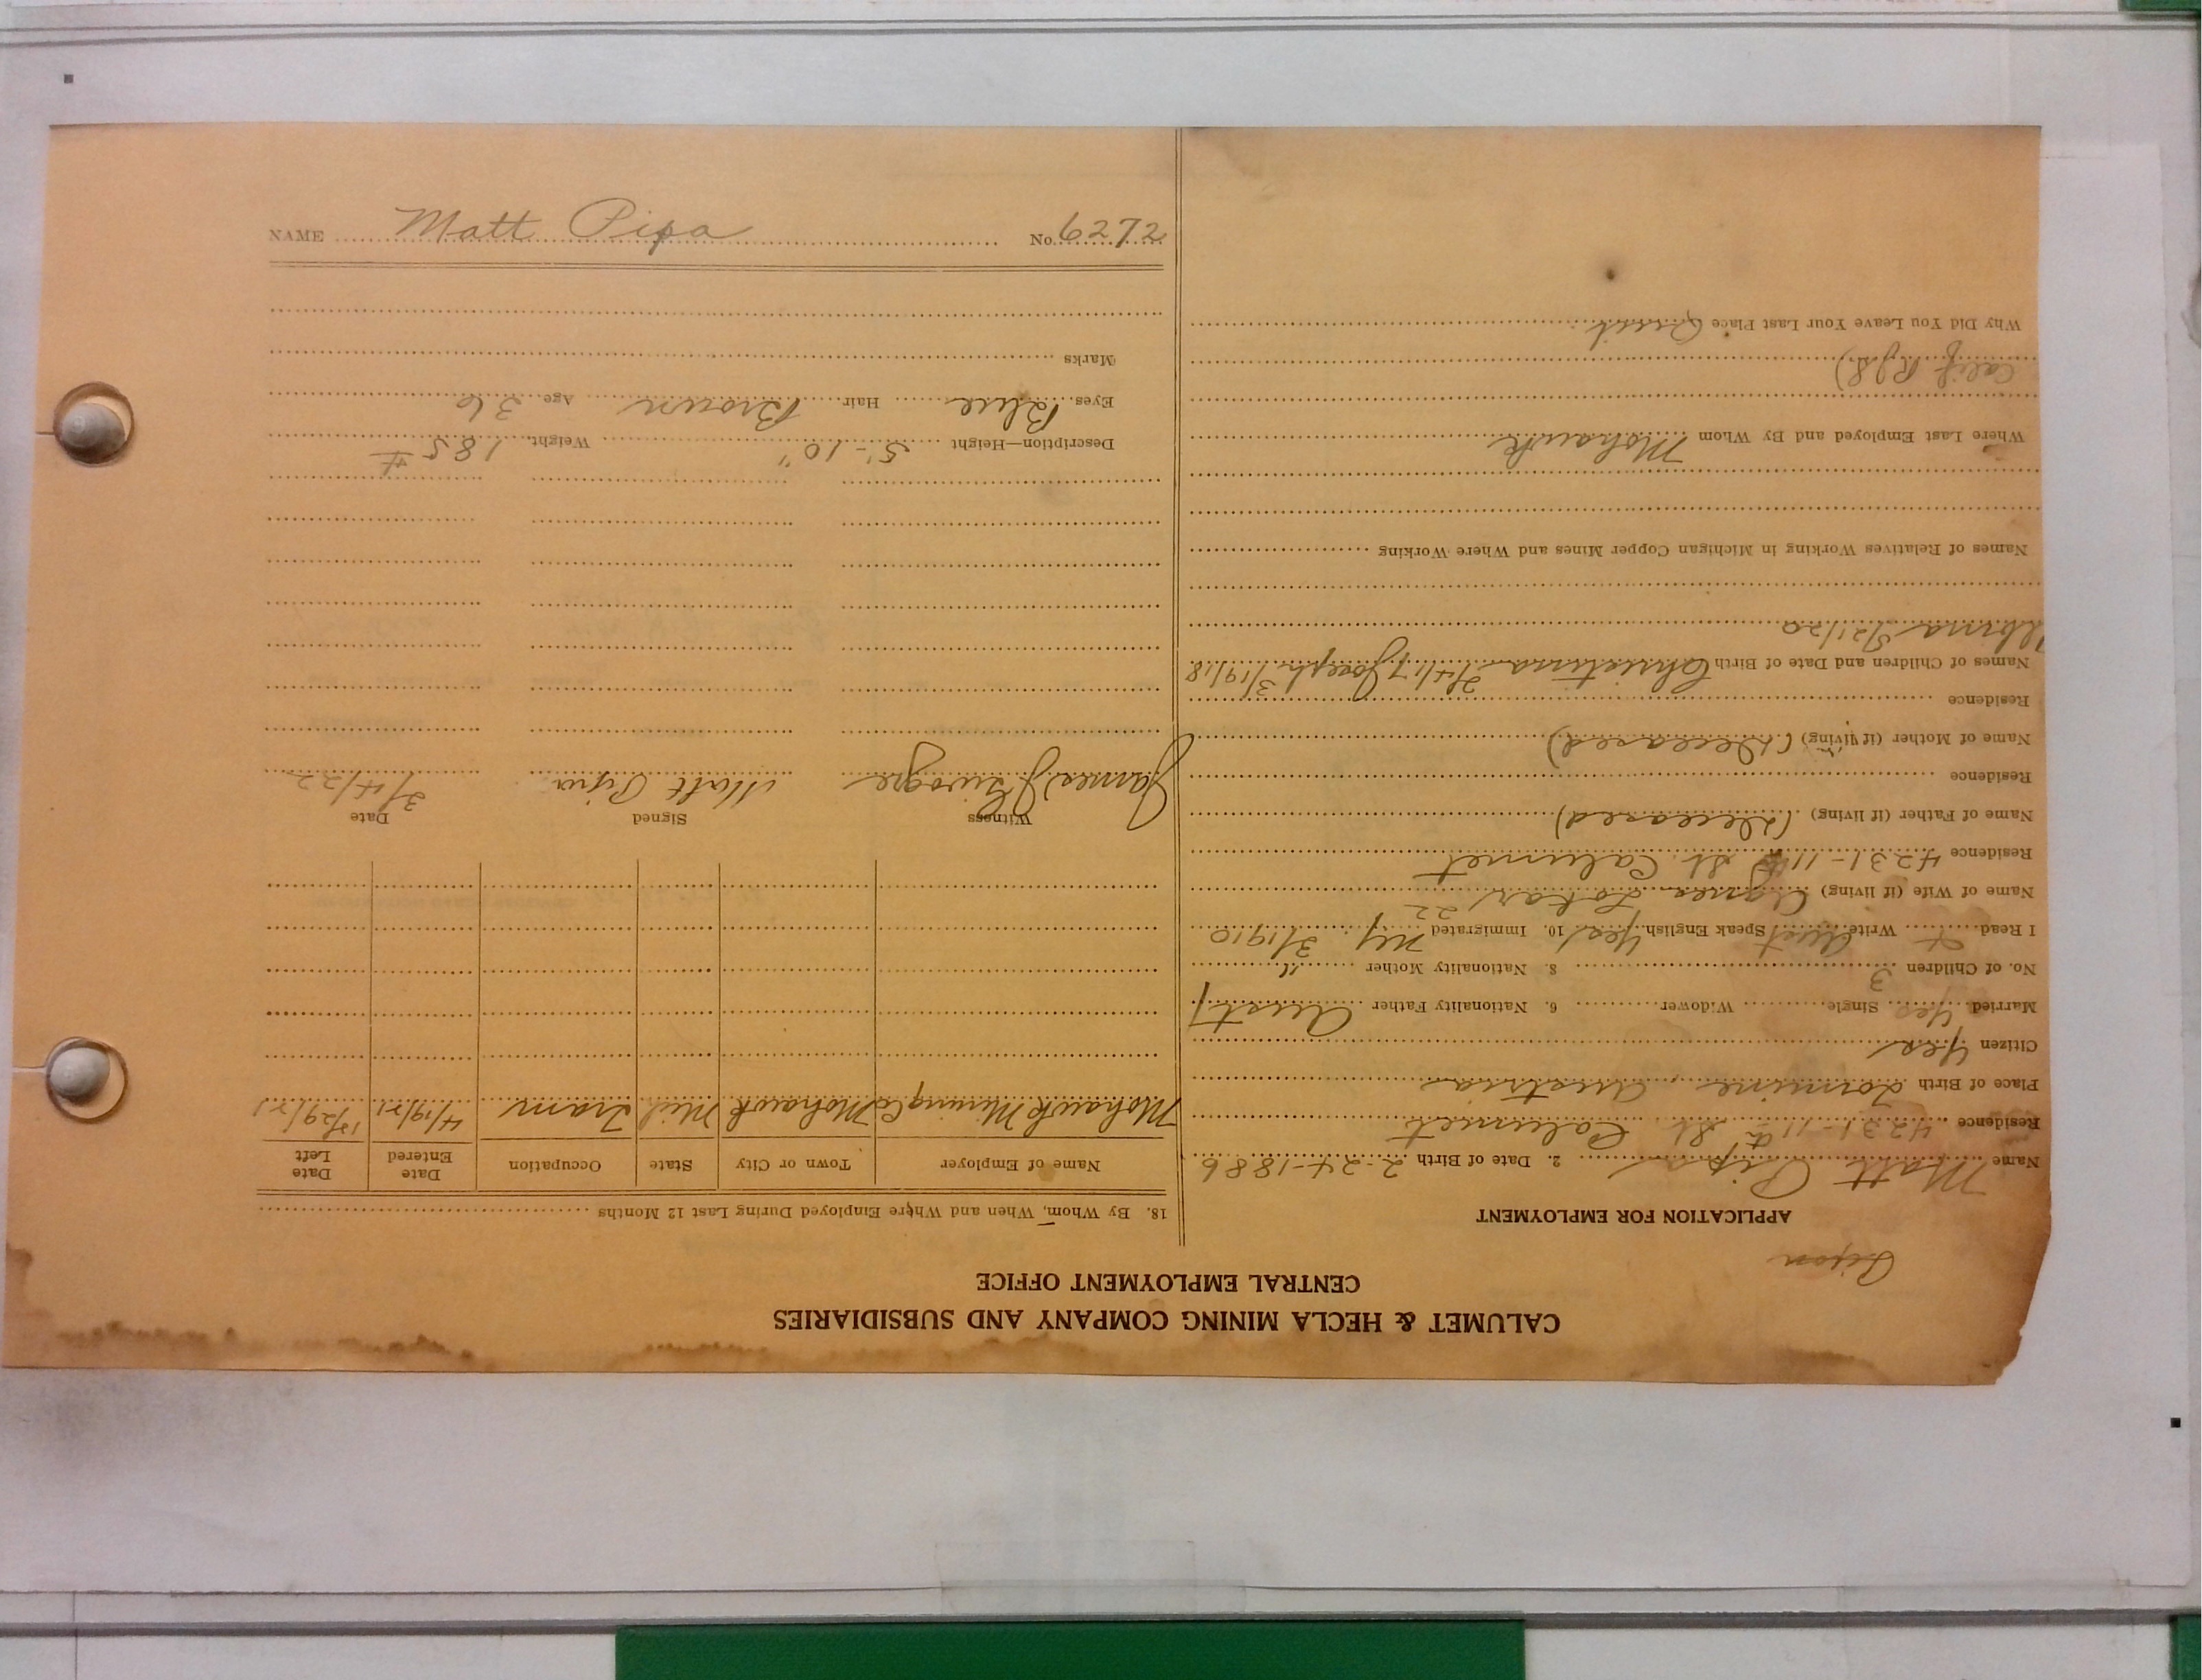 NAME Matt Pipa No. 6272
CALUMET & HECLA MINING COMPANY AND SUBSIDIARIES
CENTRAL EMPLOYMENT OFFICE
APPLICATION FOR EMPLOYMENT
Name Matt Pipa 2. Date of Birth 2-24-1886
Residence 4231-11th St. Calumet
Place of Birth Austria
Citizen Yes
Married Yes Single Widower 6. Nationality Father Aust
No. of Children 3 8. Nationality Mother "
I Read Write Aust Speak English Yes 10. Immigrated NY 3/1910
22
Name of Wife (if living) Agnes
Residence 4231-11th St. Calumet
Name of Father (if living) (Deceased)
Residence
Name of Mother (if living) (Deceased)
Residence
Names of Children and Date of Birth Christina 2/4/17 Joseph 3/19/18
Names of Relatives Working in Michigan Copper Mines and Where Working
Where Last Employed and By Whom Mohawk
Why Did You Leave Your Last Place Quit
18. By Whom, When and Where Employed During Last 12 Months
Name of Employer Town or City State Occupation Date Entered Date Left
Mohawk Mining Co Mohawk Mich Tram 4/19/21 12/29/21
Witness Signed Date
James Matt Pipa 3/4/22
Description—Height 5'-10" Weight 185 #
Eyes Blue Hair Brown Age 36
Marks